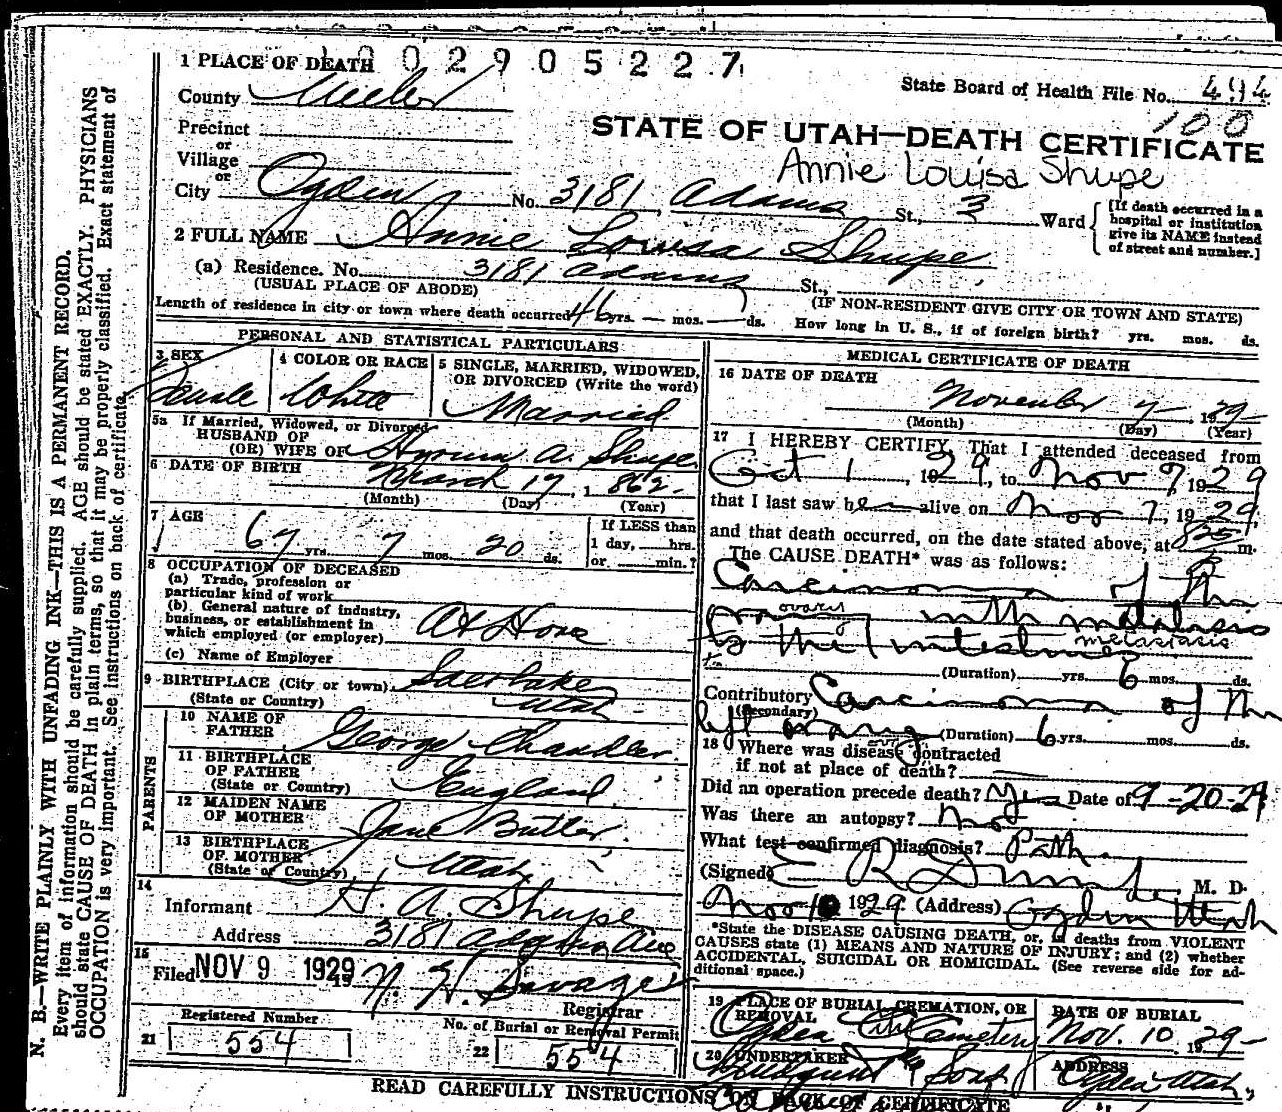 1 PLACE OF DEATH 1 0 0 2 9 0 5 2 2 7
State Board of Health File No. 494
100
County Weber
STATE OF UTAH—DEATH CERTIFICATE
Precinct
or
Village
or
Annie Louisa Shupe
City Ogden No. 3181 Adams St., 3 Ward
[If death occurred in a
hospital or institution
give its NAME instead
of street and number.]
2 FULL NAME Annie Louisa Shupe
(a) Residence. No. 3181 Adams St.,
(USUAL PLACE OF ABODE) (IF NON-RESIDENT GIVE CITY OR TOWN AND STATE)
Length of residence in city or town where death occurred 46 yrs. — mos. — ds. How long in U. S., if of foreign birth? yrs. mos. ds.
PERSONAL AND STATISTICAL PARTICULARS
3 SEX
Female
4 COLOR OR RACE
White
5 SINGLE, MARRIED, WIDOWED,
OR DIVORCED (Write the word)
Married
5a If Married, Widowed, or Divorced
HUSBAND OF
(OR) WIFE OF Hyrum A. Shupe
6 DATE OF BIRTH March 17, 1862
(Month) (Day) (Year)
7 AGE
67 yrs. 7 mos. 20 ds.
If LESS than
1 day, hrs.
or min.?
8 OCCUPATION OF DECEASED
(a) Trade, profession or
particular kind of work
(b) General nature of industry,
business, or establishment in
which employed (or employer) At Home
(c) Name of Employer
9 BIRTHPLACE (City or town) Salt Lake
(State or Country) Utah
PARENTS
10 NAME OF
FATHER George Chandler
11 BIRTHPLACE
OF FATHER
(State or Country) England
12 MAIDEN NAME
OF MOTHER Jane Butler
13 BIRTHPLACE
OF MOTHER
(State or Country) Utah
14
Informant H. A. Shupe
Address 3181 Adams Ave
15
Filed NOV 9 1929 19 N. H. Savage
Registrar
Registered Number
21 554
No. of Burial or Removal Permit
22 554
MEDICAL CERTIFICATE OF DEATH
16 DATE OF DEATH
November 7, 1929
(Month) (Day) (Year)
17 I HEREBY CERTIFY, That I attended deceased from
Oct 1, 1929, to Nov 7, 1929
that I last saw her alive on Nov 7, 1929,
and that death occurred, on the date stated above, at 825 P m.
The CAUSE DEATH* was as follows:
Carcinoma of the
ovary
ovary with metastasis
metastasis
to the Intestine
(Duration) yrs. 6 mos. ds.
Contributory Carcinoma of the
(Secondary)
left ovary (Duration) 6 yrs. mos. ds.
ovary
18 Where was disease contracted
if not at place of death?
Did an operation precede death? Yes Date of 9-20-29
Was there an autopsy? no
What test confirmed diagnosis? Path.
(Signed) E R Dumke, M. D.
Nov 10 1929 (Address) Ogden Utah
*State the DISEASE CAUSING DEATH, or, in deaths from VIOLENT
CAUSES state (1) MEANS AND NATURE OF INJURY; and (2) whether
ACCIDENTAL, SUICIDAL OR HOMICIDAL. (See reverse side for ad-
ditional space.)
19 PLACE OF BURIAL, CREMATION, OR
REMOVAL
Ogden City Cemetery
DATE OF BURIAL
Nov. 10, 1929
20 UNDERTAKER
Lindquist & Sons
ADDRESS
Ogden Utah
READ CAREFULLY INSTRUCTIONS ON BACK OF CERTIFICATE
N. B.—WRITE PLAINLY WITH UNFADING INK—THIS IS A PERMANENT RECORD.
Every item of information should be carefully supplied. AGE should be stated EXACTLY. PHYSICIANS
should state CAUSE OF DEATH in plain terms, so that it may be properly classified. Exact statement of
OCCUPATION is very important. See instructions on back of certificate.